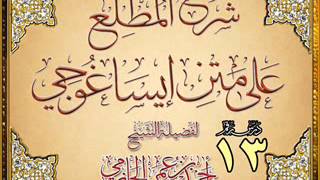 شرح المطلع
على متن إيساغوجي
لفضيلة الشيخ
أحمد بن عمر الحازمي
درس رقم
١٣